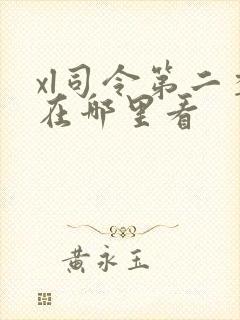 xl司令第二
在哪里看
黄永玉